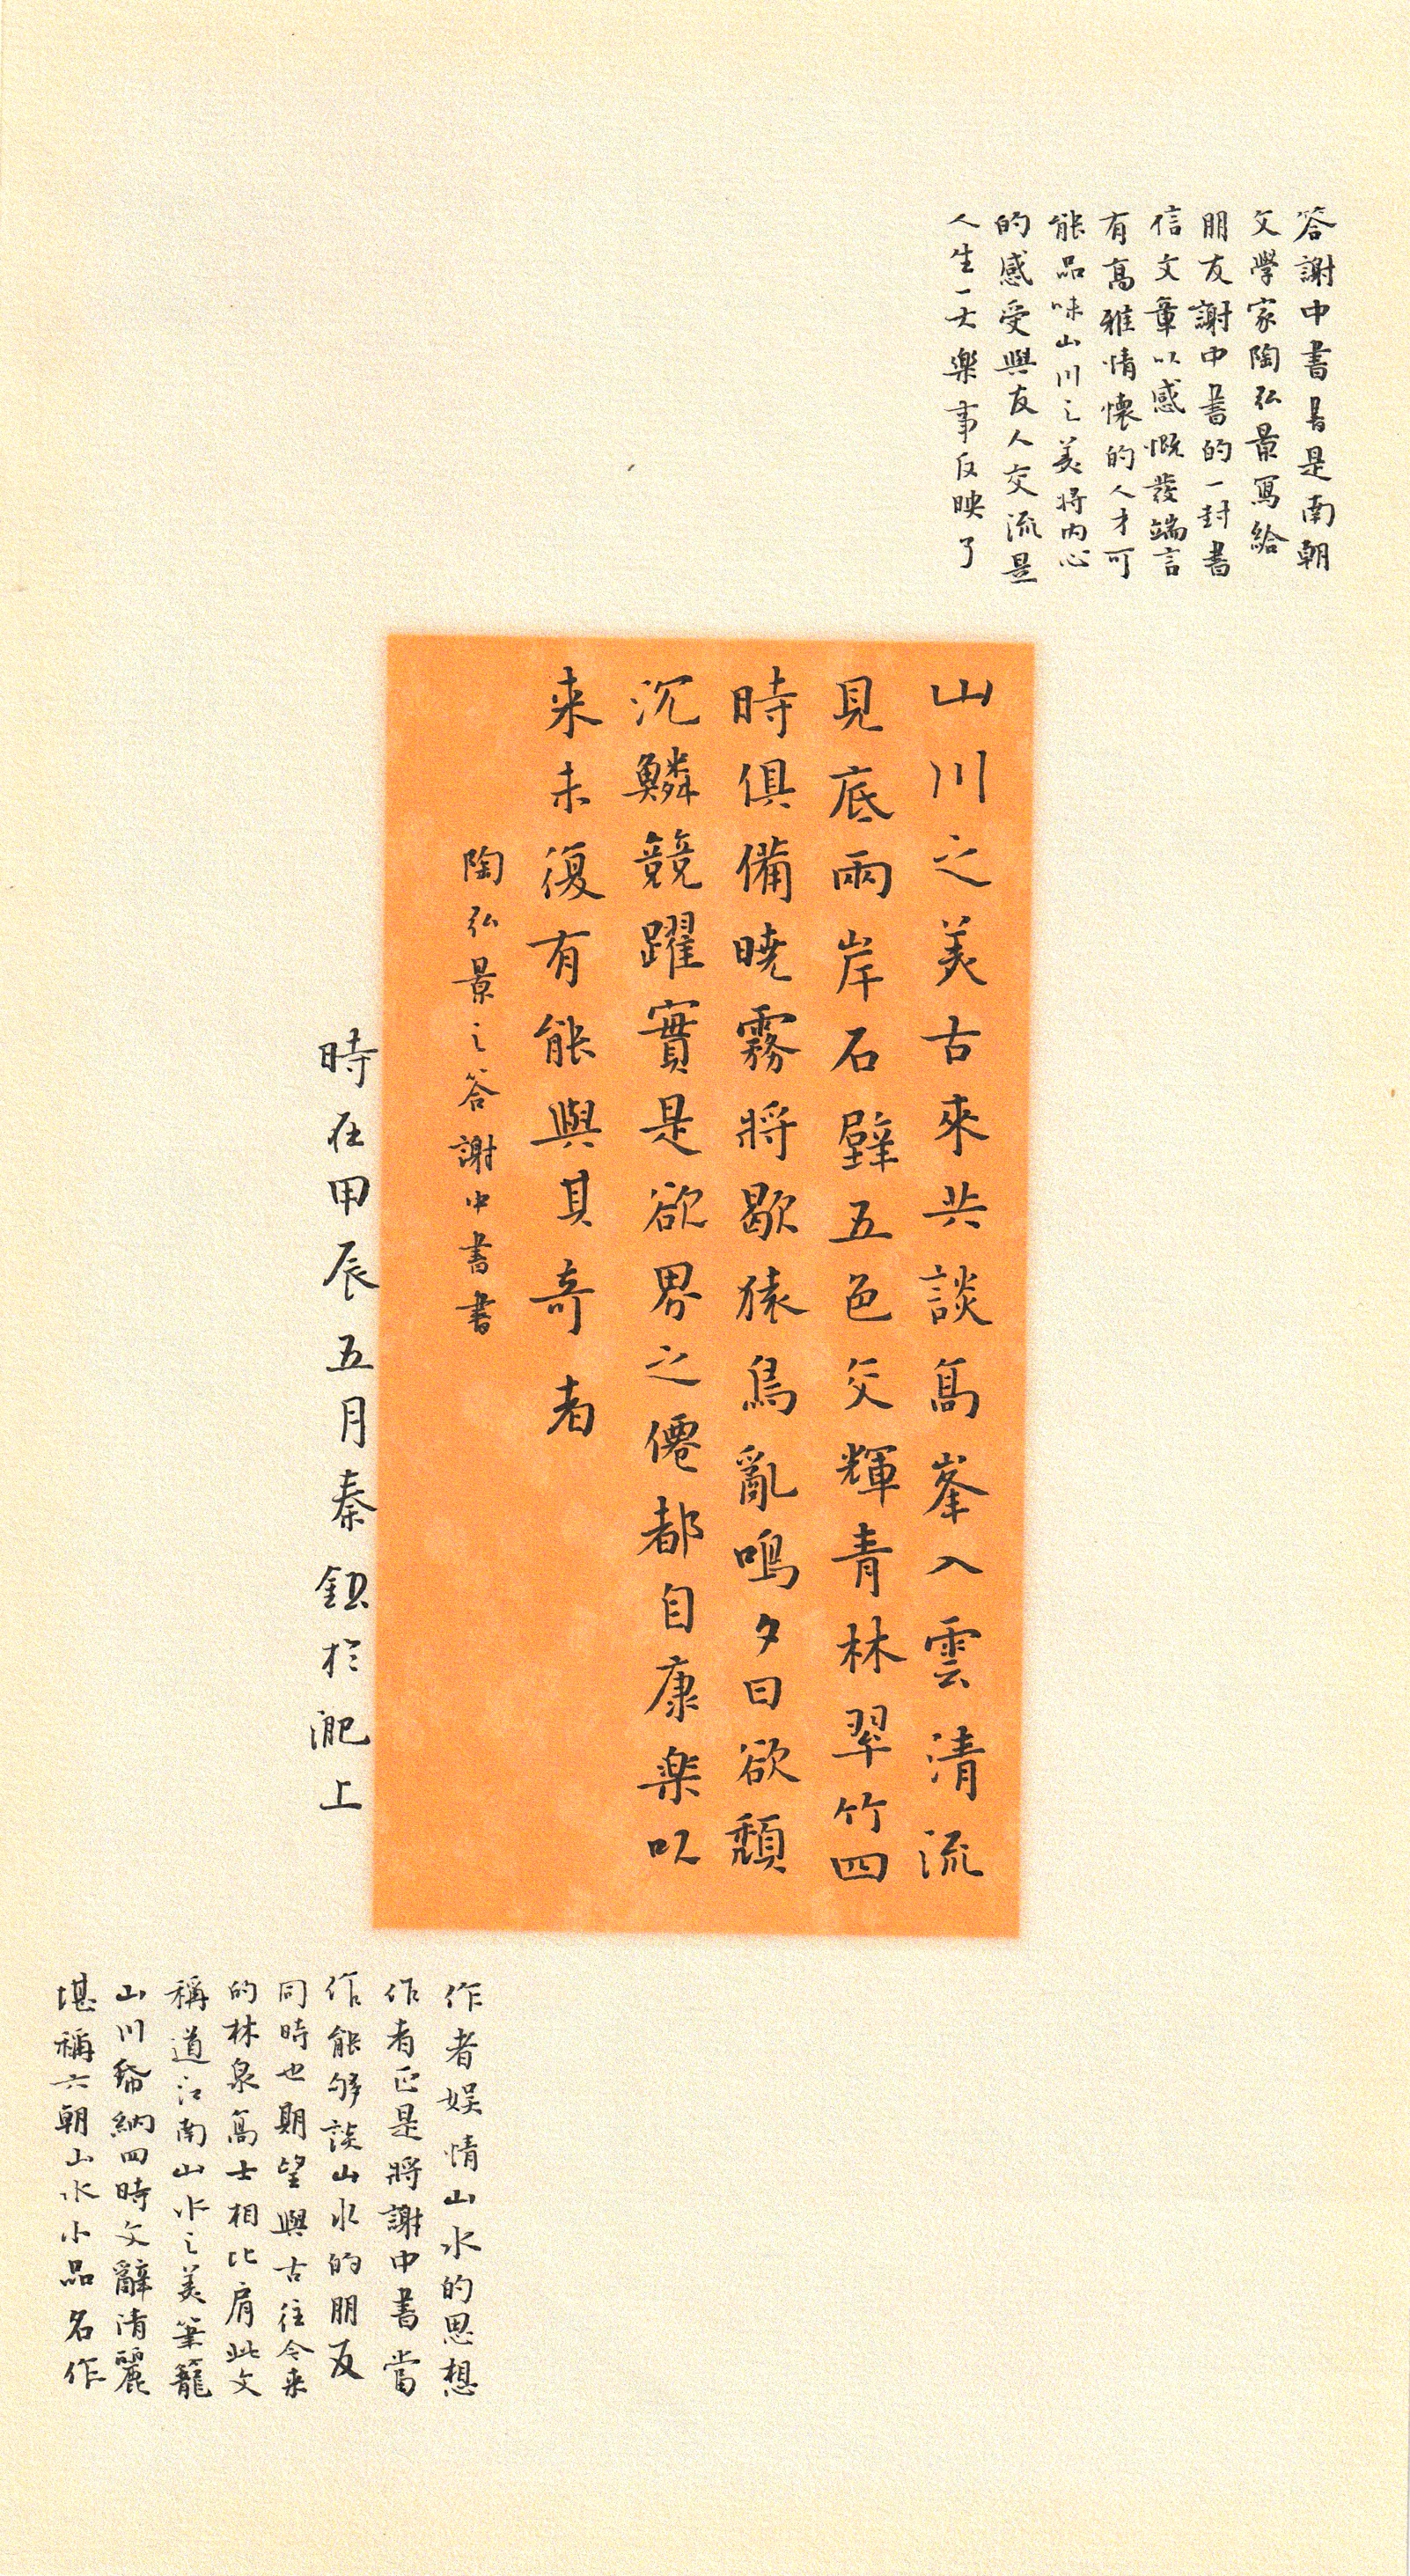 答謝中書書是南朝
文學家陶弘景寫給
朋友謝中書的一封書
信文章以感慨發端言
有高雅情懷的人才可
能品味山川之美將内心
的感受與友人交流是
人生一大樂事反映了
山川之美古來共談高峯入雲清流
見底兩岸石壁五色交輝青林翠竹四
時俱備曉霧將歇猿鳥亂鳴夕日欲頹
沉鱗競躍實是欲界之僊都自康樂以
来未復有能與其奇者
陶弘景之答謝中書書
時在甲辰五月秦鈕於淝上
作者娱情山水的思想
作者正是將謝中書當
作能够談山水的朋友
同時也期望與古往今来
的林泉高士相比肩此文
稱道江南山水之美筆籠
山川紙納四時文辭清麗
堪稱六朝山水小品名作